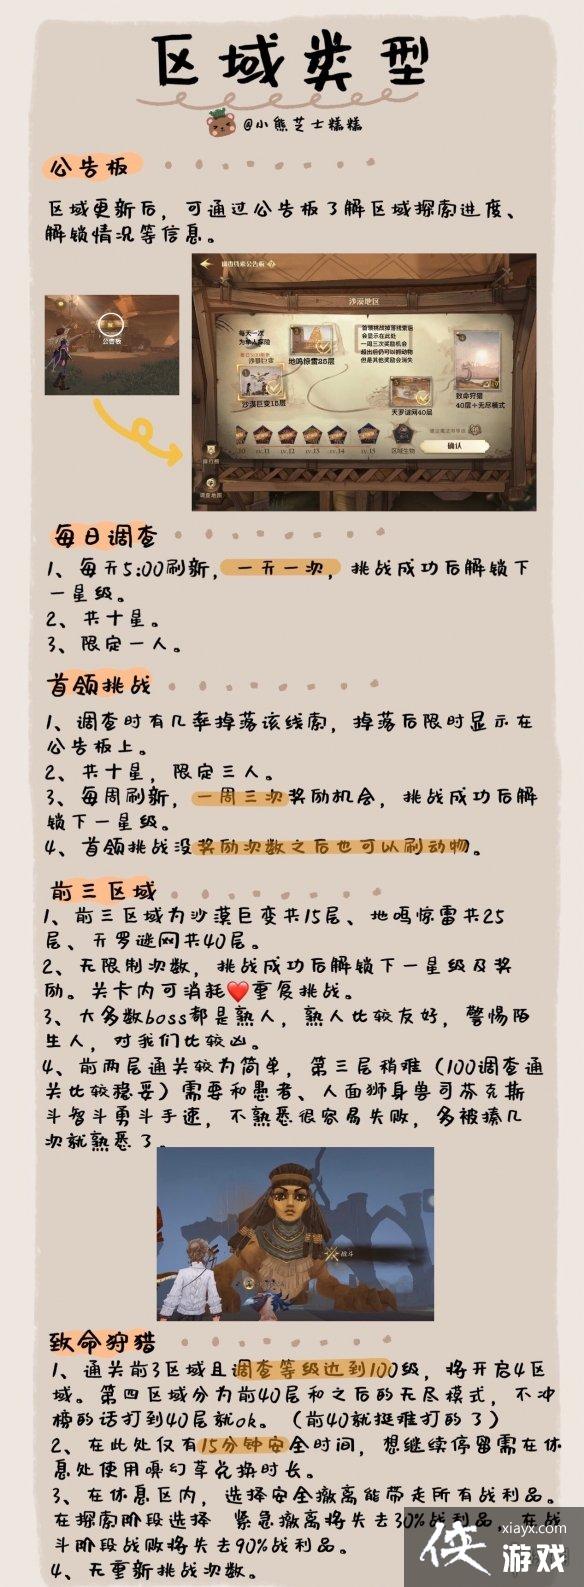 区域类型
@小熊芝士糕糕
公告板
区域更新后，可通过公告板了解区域探索进度、
解锁情况等信息。
公告板
调查线索公告板
沙漠地区
每天一次
为单人探险
沙漠巨变15层
地鸣惊雷25层
首领挑战掉落线索后
会显示在此处
一周三次奖励机会
超出后仍可以抓动物
但是其他奖励会消失
天罗谜网40层
致命狩猎
40层+无尽模式
LV.11
LV.12
LV.13
LV.14
LV.15
区域生物
确认
排行榜
调查地图
每日调查
1、每天5:00刷新，一天一次，挑战成功后解锁下
一星级。
2、共十星。
3、限定一人。
首领挑战
1、调查时有几率掉落该线索，掉落后限时显示在
公告板上。
2、共十星，限定三人。
3、每周刷新，一周三次奖励机会，挑战成功后解
锁下一星级。
4、首领挑战没奖励次数之后也可以刷动物。
前三区域
1、前三区域为沙漠巨变共15层、地鸣惊雷共25
层、天罗谜网共40层。
2、无限制次数，挑战成功后解锁下一星级及奖
励。关卡内可消耗❤️重复挑战。
3、大多数boss都是熟人，熟人比较友好，警惕陌
生人，对我们比较凶。
4、前两层通关较为简单，第三层稍难（100调查通
关比较稳妥）需要和愚者、人面狮身兽司芬克斯
斗智斗勇斗手速，不熟悉很容易失败，多被揍几
次就熟悉了。
战斗
致命狩猎
1、通关前3区域且调查等级达到100级，将开启4区
域。第四区域分为前40层和之后的无尽模式，不冲
榜的话打到40层就ok。（前40就挺难打的了）
2、在此处仅有15分钟安全时间，想继续停留需在休
息处使用嗅幻草兑换时长。
3、在休息区内，选择安全撤离能带走所有战利品。
在探索阶段选择 紧急撤离将失去30%战利品，在战
斗阶段战败将失去90%战利品。
4、无重新挑战次数。
侠
xiayx.com
游戏